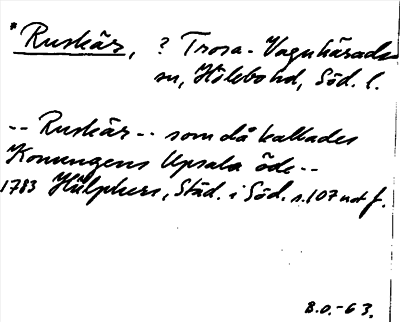 *Ruskär, ? Trosa-Vagnhärads
sn, Hölebo hd, Söd. l.
-- Ruskär -- som då kallades
Konungens Upsala öde --
1783 Hülphers, Städ. i Söd. s. 107 not f.
B.O.-63.